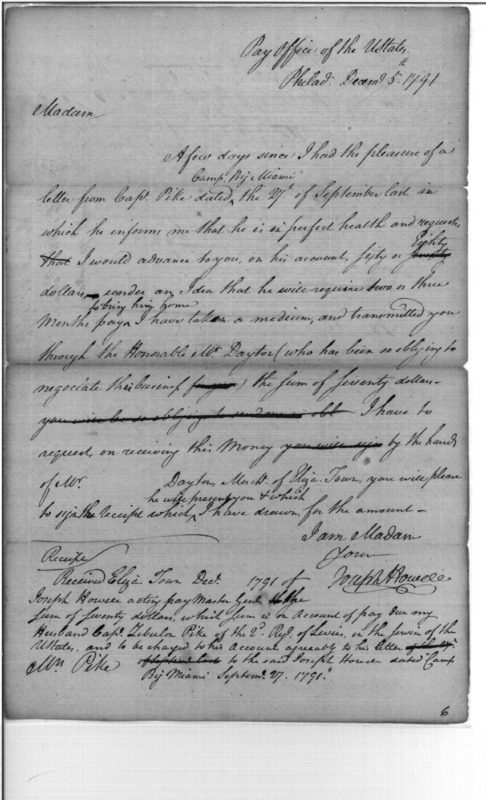 Pay Office of the UStates
Philad. Decem. 5th 1791
Madam
A few days since I had the pleasure of a
Camp Big Miami
letter from Capt. Pike dated the 27th of September last in
which he informs me that he is in perfect health and requests,
Eighty
that I would advance to you, on his account, sixty or seventy
dollars, under an Idea that he will require two or three
to bring him home
Months pay, I have taken a medium, and transmitted you
through the Honorable Mr. Dayton (who has been so obliging to
negociate this business for you) the sum of seventy dollars
you will be so obliging I have to
request, on receiving this Money you will sign by the hands
of Mr. Dayton, Mercht. of Eliza. Town, you will please
he will present you & which
to sign the receipt which, I have drawn, for the amount —
I am Madam
Your
Joseph Howell
Receipt
Received Eliza. Town Decr. 1791 of
Joseph Howell acting pay Master Genl. the
sum of seventy dollars, which sum is on Account of pay due my
Husband Capt. Zebulon Pike of the 2d. Regt. of Levies, in the service of the
UStates. and to be charged to his Account agreeably to his letter
Mrs. Pike of September last to the said Joseph Howell dated Camp
Big Miami Septem. 27. 1791.
6